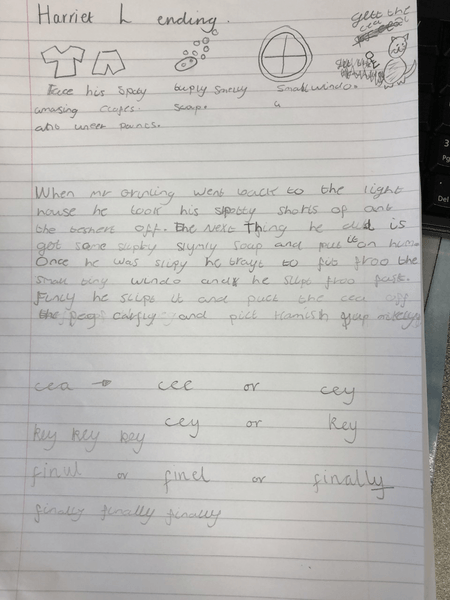 Harriet L ending.
gets the
cea
Take his spoty
amasing
also under paints.
buply smelly
soap.
Small window.
When mr Grinling went back to the light
house he took his spotty shorts of and
the
off. The Next Thing he did is
got some slipky slymly soap and put it on him.
Once he was slipy he trays to fut froo the
small tiny windo and he slips froo fast.
Finly he slips it and puct the cea off
the peg carfly and pict Hamish up
cea → cee or cey
cey or key
key key key
finul or finel or finally
finally finally finally